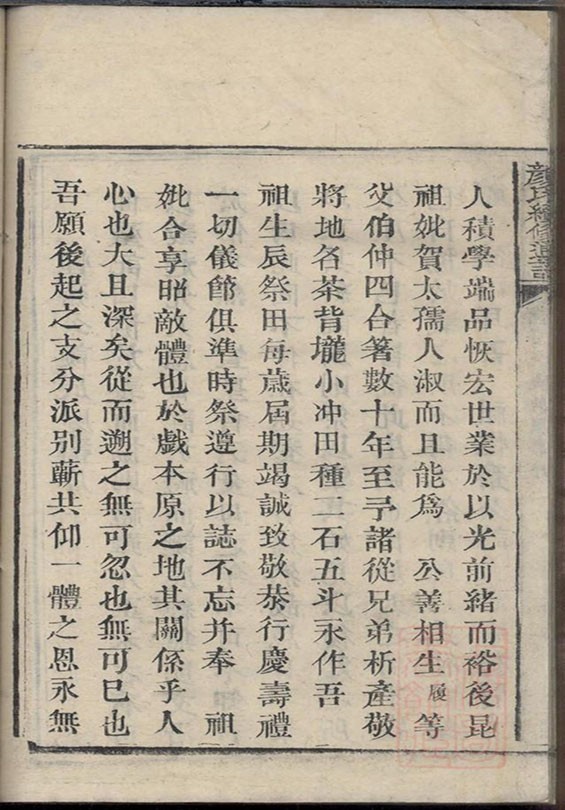 顏氏續修通譜
人積學端品恢宏世業於以光前緒而裕後昆
祖妣賀太孺人淑而且能爲 公善相生履等
父伯仲四合箸數十年至予諸從兄弟析產敬
將地名茶背壠小冲田種二石五斗永作吾
祖生辰祭田每歲屆期竭誠致敬恭行慶壽禮
一切儀節俱準時祭遵行以誌不忘并奉 祖
妣合享昭敵體也於戲本原之地其關係乎人
心也大且深矣從而遡之無可忽也無可已也
吾願後起之支分派別蘄共仰一體之恩永無